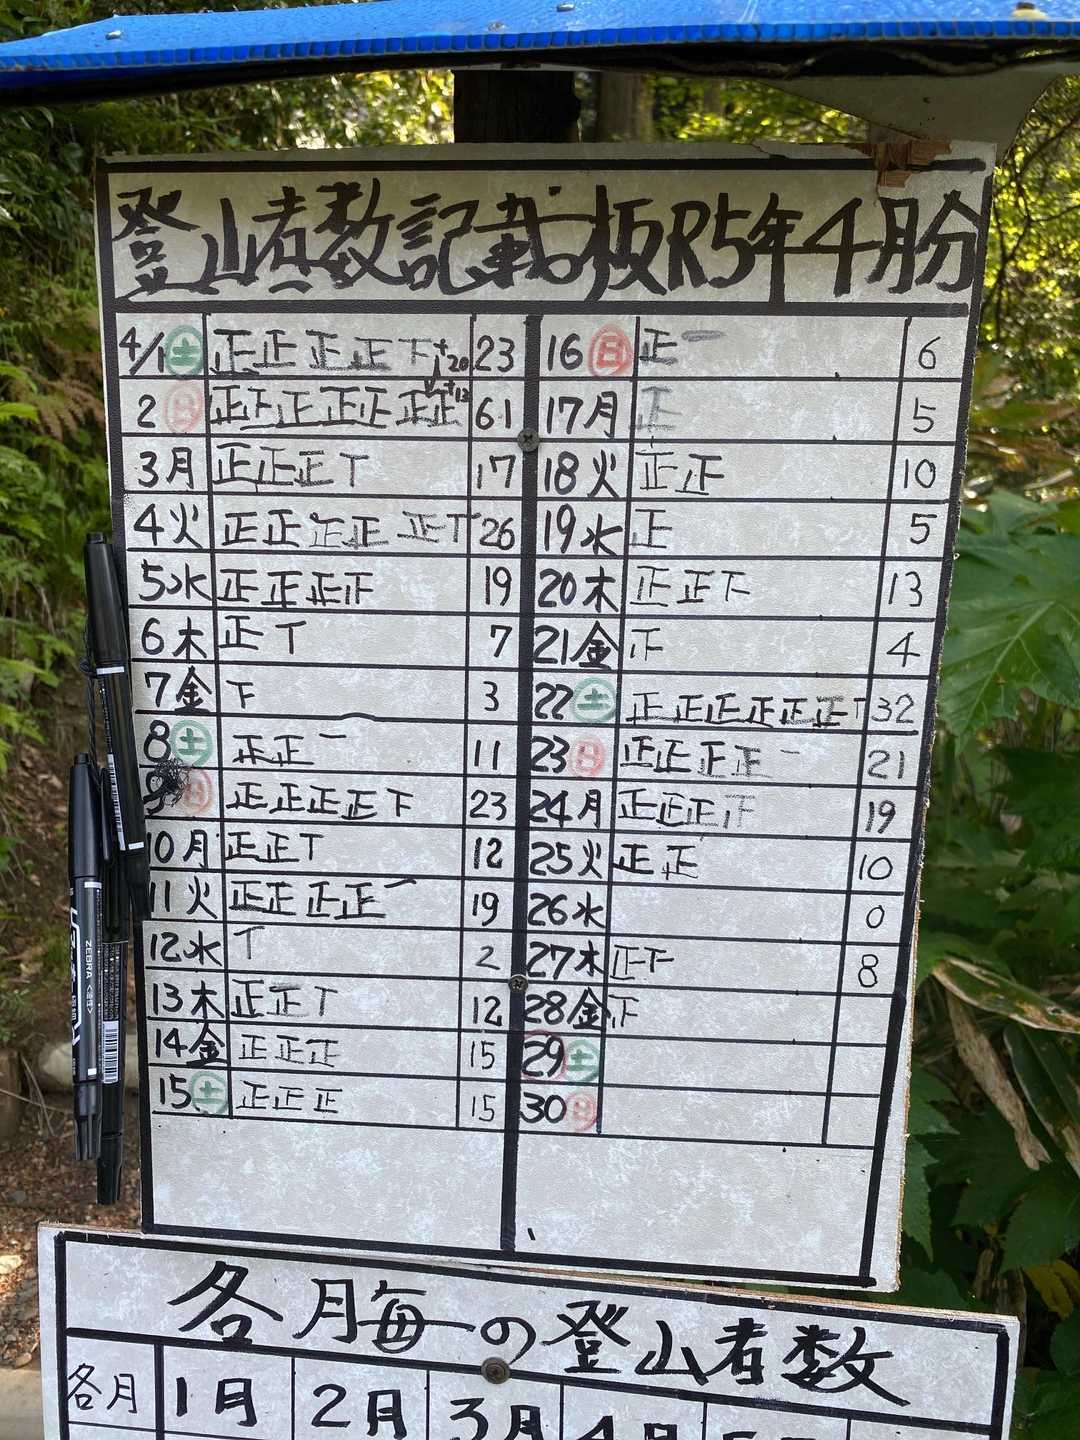 登山者数記載板R5年4月分
4/1 土 正正正正下 +20 23
2 日 正正正正正正正 +13 61
3 月 正正正T 17
4 火 正正正正正T 26
5 水 正正正正 19
6 木 正T 7
7 金 下 3
8 土 正正一 11
9 日 正正正正下 23
10 月 正正T 12
11 火 正正正正一 19
12 水 T 2
13 木 正正T 12
14 金 正正正 15
15 土 正正正 15
16 日 正一 6
17 月 正 5
18 火 正正 10
19 水 正 5
20 木 正正下 13
21 金 正 4
22 土 正正正正正正T 32
23 日 正正正正一 21
24 月 正正正正 19
25 火 正正 10
26 水 0
27 木 正下 8
28 金 下
29 土
30 日
各月毎の登山者数
各月 1月 2月 3月 4月
ZEBRA